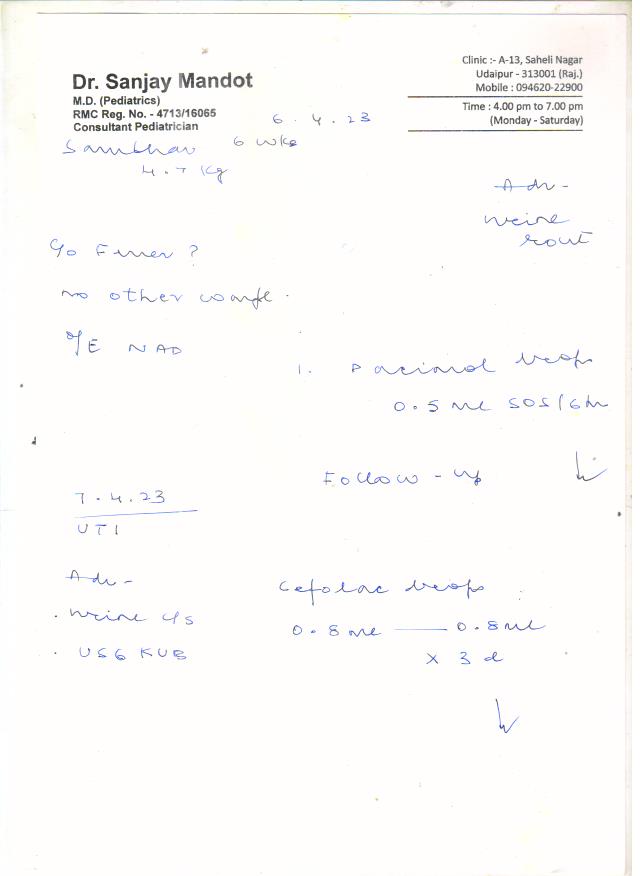 Dr. Sanjay Mandot
M.D. (Pediatrics)
RMC Reg. No. - 4713/16065
Consultant Pediatrician
Clinic :- A-13, Saheli Nagar
Udaipur - 313001 (Raj.)
Mobile : 094620-22900
Time : 4.00 pm to 7.00 pm
(Monday - Saturday)
6.4.23
Sambhav 6 wks
4.7 Kg
Adv-
urine
rout
c/o Fever ?
no other compl.
O/E NAD
1. Pacimol drops
0.5 ml SOS/6hr
Follow-up
7.4.23
UTI
Adv-
. urine c/s
. USG KUB
Cefolac drops
0.8ml — 0.8ml
x 3 d